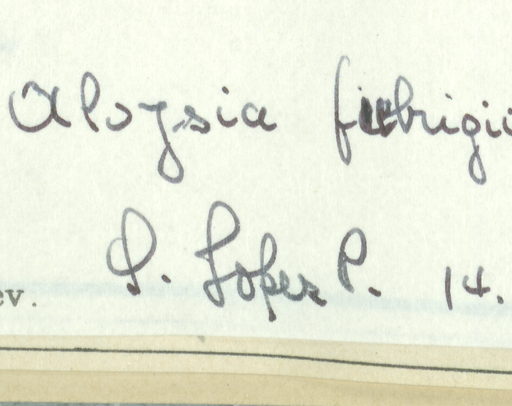 Aloysia fiebrigii
S. Lopez P. 14.
ev.